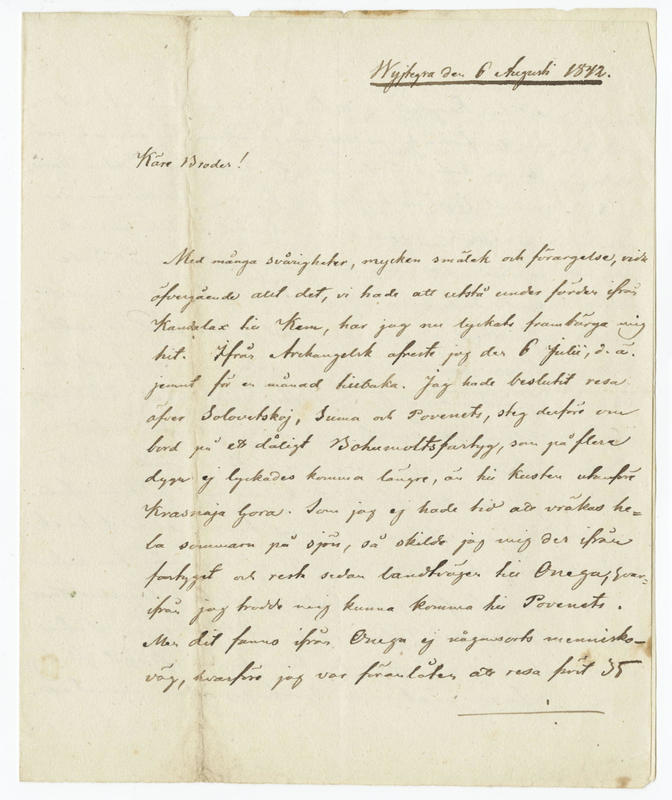 Wyjtegra den 6 Augusti 1842.
Käre Broder!
Med många svårigheter, mycken smälek och förargelse, vida
öfvergående allt det, vi hade att utstå under färden ifrån
Kandalax till Kem, har jag nu lyckats frambärga mig
hit. Ifrån Archangelsk afreste jag den 6 Julii, d. ä.
jemnt för en månad tillbaka. Jag hade beslutit resa
öfver Solovetskoj, Suma och Povenets, steg derföre om
bord på ett dåligt Bohomoltsfartyg, som på flera
dygn ej lyckades komma längre, än till kusten utanföre
Krasnaja Gora. Som jag ej hade tid att vräkas he-
la sommarn på sjön, så skilde jag mig der ifrån
fartyget och reste sedan landtvägen till Onega, hvar-
ifrån jag trodde mig kunna komma till Povenets.
Men dit fanns ifrån Onega ej någonsorts mennisko-
väg, hvarföre jag var föranlåten att resa först 35